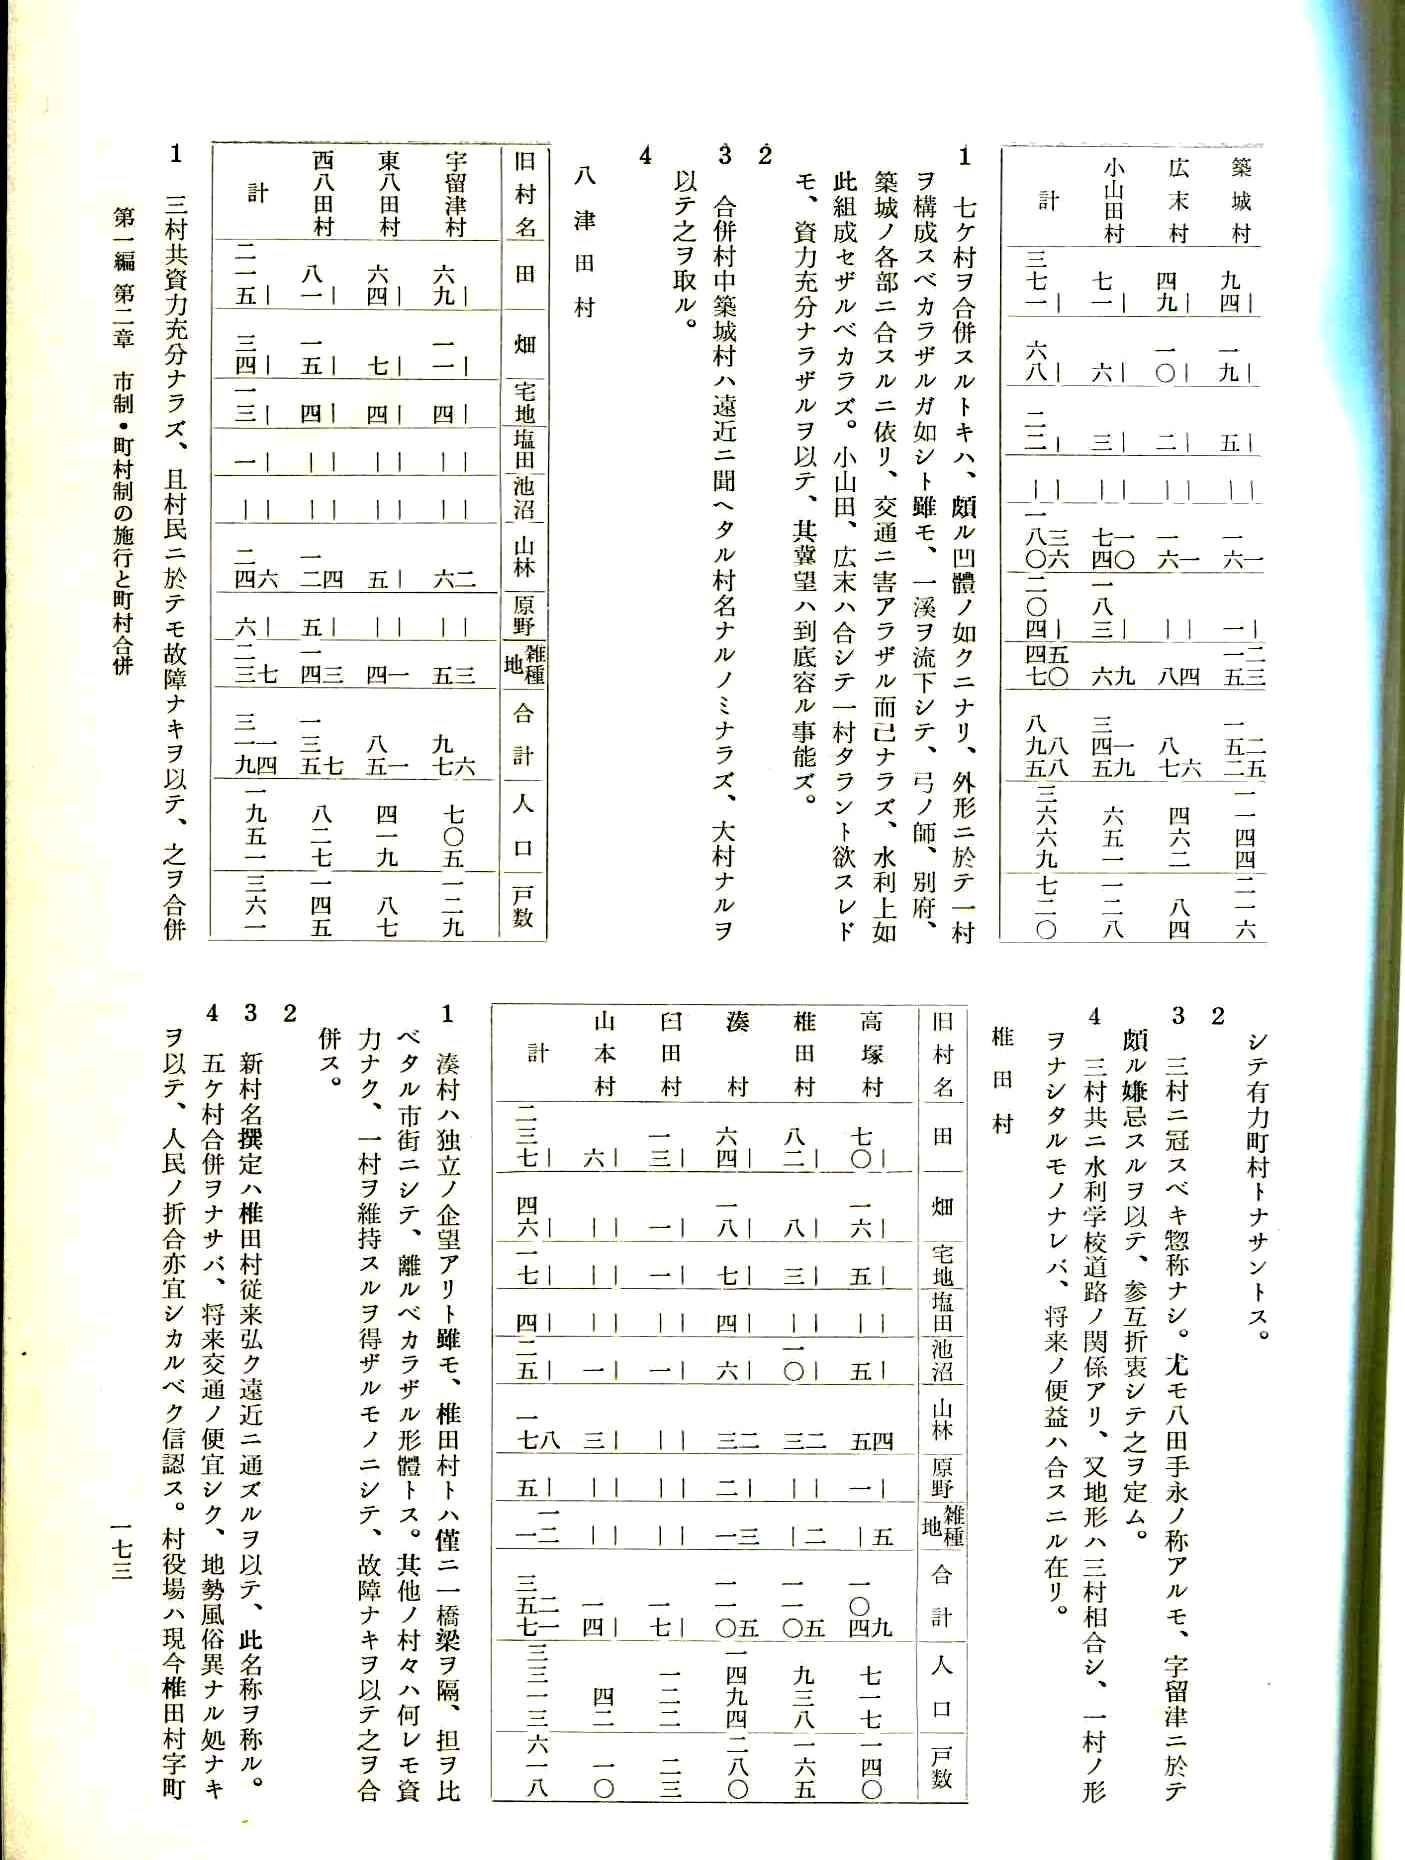 築城村 ｜ 九四 ｜ 一九 ｜ 五 ｜ ｜ 一 一六 ｜ 一 二三 一五 二五 一五二 一一四四 二一六
広末村 ｜ 四九 ｜ 一〇 ｜ 二 ｜ ｜ 一 一六 ｜ ｜ 四 八 六 八七 四六二 八四
小山田村 ｜ 七一 ｜ 六 ｜ 三 ｜ ｜ 一〇 七四 ｜ 一八三 九 六 一九 三四五 六五一 一二八
計 ｜ 三七一 ｜ 六八 ｜ 二二 ｜ ｜ 三六 一八〇 ｜ 二〇四 五〇 四七 八八 八九五 三六六九 七二〇
1 七ケ村ヲ合併スルトキハ、頗ル凹體ノ如クニナリ、外形ニ於テ一村
ヲ構成スベカラザルガ如シト雖モ、一溪ヲ流下シテ、弓ノ師、別府、
築城ノ各部ニ合スルニ依リ、交通ニ害アラザル而已ナラズ、水利上如
此組成セザルベカラズ。小山田、広末ハ合シテ一村タラント欲スレド
モ、資力充分ナラザルヲ以テ、其冀望ハ到底容ル事能ズ。
2
3 合併村中築城村ハ遠近ニ聞ヘタル村名ナルノミナラズ、大村ナルヲ
以テ之ヲ取ル。
4
八津田村
旧村名 田 畑 宅地 塩田 池沼 山林 原野 雑種地 合計 人口 戸数
宇留津村 ｜ 六九 ｜ 一一 ｜ 四 ｜ ｜ ｜ ｜ 二 六 ｜ ｜ 三 五 六 九七 七〇五 一二九
東八田村 ｜ 六四 ｜ 七 ｜ 四 ｜ ｜ ｜ ｜ ｜ 五 ｜ ｜ 一 四 一 八五 四一九 八七
西八田村 ｜ 八一 ｜ 一五 ｜ 四 ｜ ｜ ｜ ｜ 四 一二 ｜ 五 三 一四 七 一三五 八二七 一四五
計 ｜ 二一五 ｜ 三四 ｜ 一三 ｜ 一 ｜ ｜ 六 二四 ｜ 六 七 二三 一四 三一九 一九五一 三六一
1 三村共資力充分ナラズ、且村民ニ於テモ故障ナキヲ以テ、之ヲ合併
シテ有力町村トナサントス。
2
3 三村ニ冠スベキ惣称ナシ。尤モ八田手永ノ称アルモ、字留津ニ於テ
頗ル嫌忌スルヲ以テ、参互折衷シテ之ヲ定ム。
4 三村共ニ水利学校道路ノ関係アリ、又地形ハ三村相合シ、一村ノ形
ヲナシタルモノナレバ、将来ノ便益ハ合スニル在リ。
椎田村
旧村名 田 畑 宅地 塩田 池沼 山林 原野 雑種地 合計 人口 戸数
高塚村 ｜ 七〇 ｜ 一六 ｜ 五 ｜ ｜ ｜ 五 四 五 ｜ 一 五 ｜ 九 一〇四 七一七 一四〇
椎田村 ｜ 八二 ｜ 八 ｜ 三 ｜ ｜ ｜ 一〇 二 三 ｜ ｜ 二 ｜ 五 一一〇 九三八 一六五
湊村 ｜ 六四 ｜ 一八 ｜ 七 ｜ 四 ｜ 六 二 三 ｜ 二 三 一 五 一一〇 一四九四 二八〇
臼田村 ｜ 一三 ｜ 一 ｜ 一 ｜ ｜ ｜ 一 ｜ ｜ ｜ ｜ ｜ ｜ ｜ 一七 一二二 二三
山本村 ｜ 六 ｜ ｜ ｜ ｜ ｜ ｜ ｜ 一 ｜ 三 ｜ ｜ ｜ ｜ ｜ 一四 四二 一〇
計 ｜ 二三七 ｜ 四六 ｜ 一七 ｜ 四 ｜ 二五 八 一七 ｜ 五 一二 一 二一 三五七 三三一三 六一八
1 湊村ハ独立ノ企望アリト雖モ、椎田村トハ僅ニ一橋梁ヲ隔、担ヲ比
ベタル市街ニシテ、離ルベカラザル形體トス。其他ノ村々ハ何レモ資
力ナク、一村ヲ維持スルヲ得ザルモノニシテ、故障ナキヲ以テ之ヲ合
併ス。
2
3 新村名撰定ハ椎田村従来弘ク遠近ニ通ズルヲ以テ、此名称ヲ称ル。
4 五ケ村合併ヲナサバ、将来交通ノ便宜シク、地勢風俗異ナル処ナキ
ヲ以テ、人民ノ折合亦宜シカルベク信認ス。村役場ハ現今椎田村字町
第一編 第二章 市制・町村制の施行と町村合併
一七三